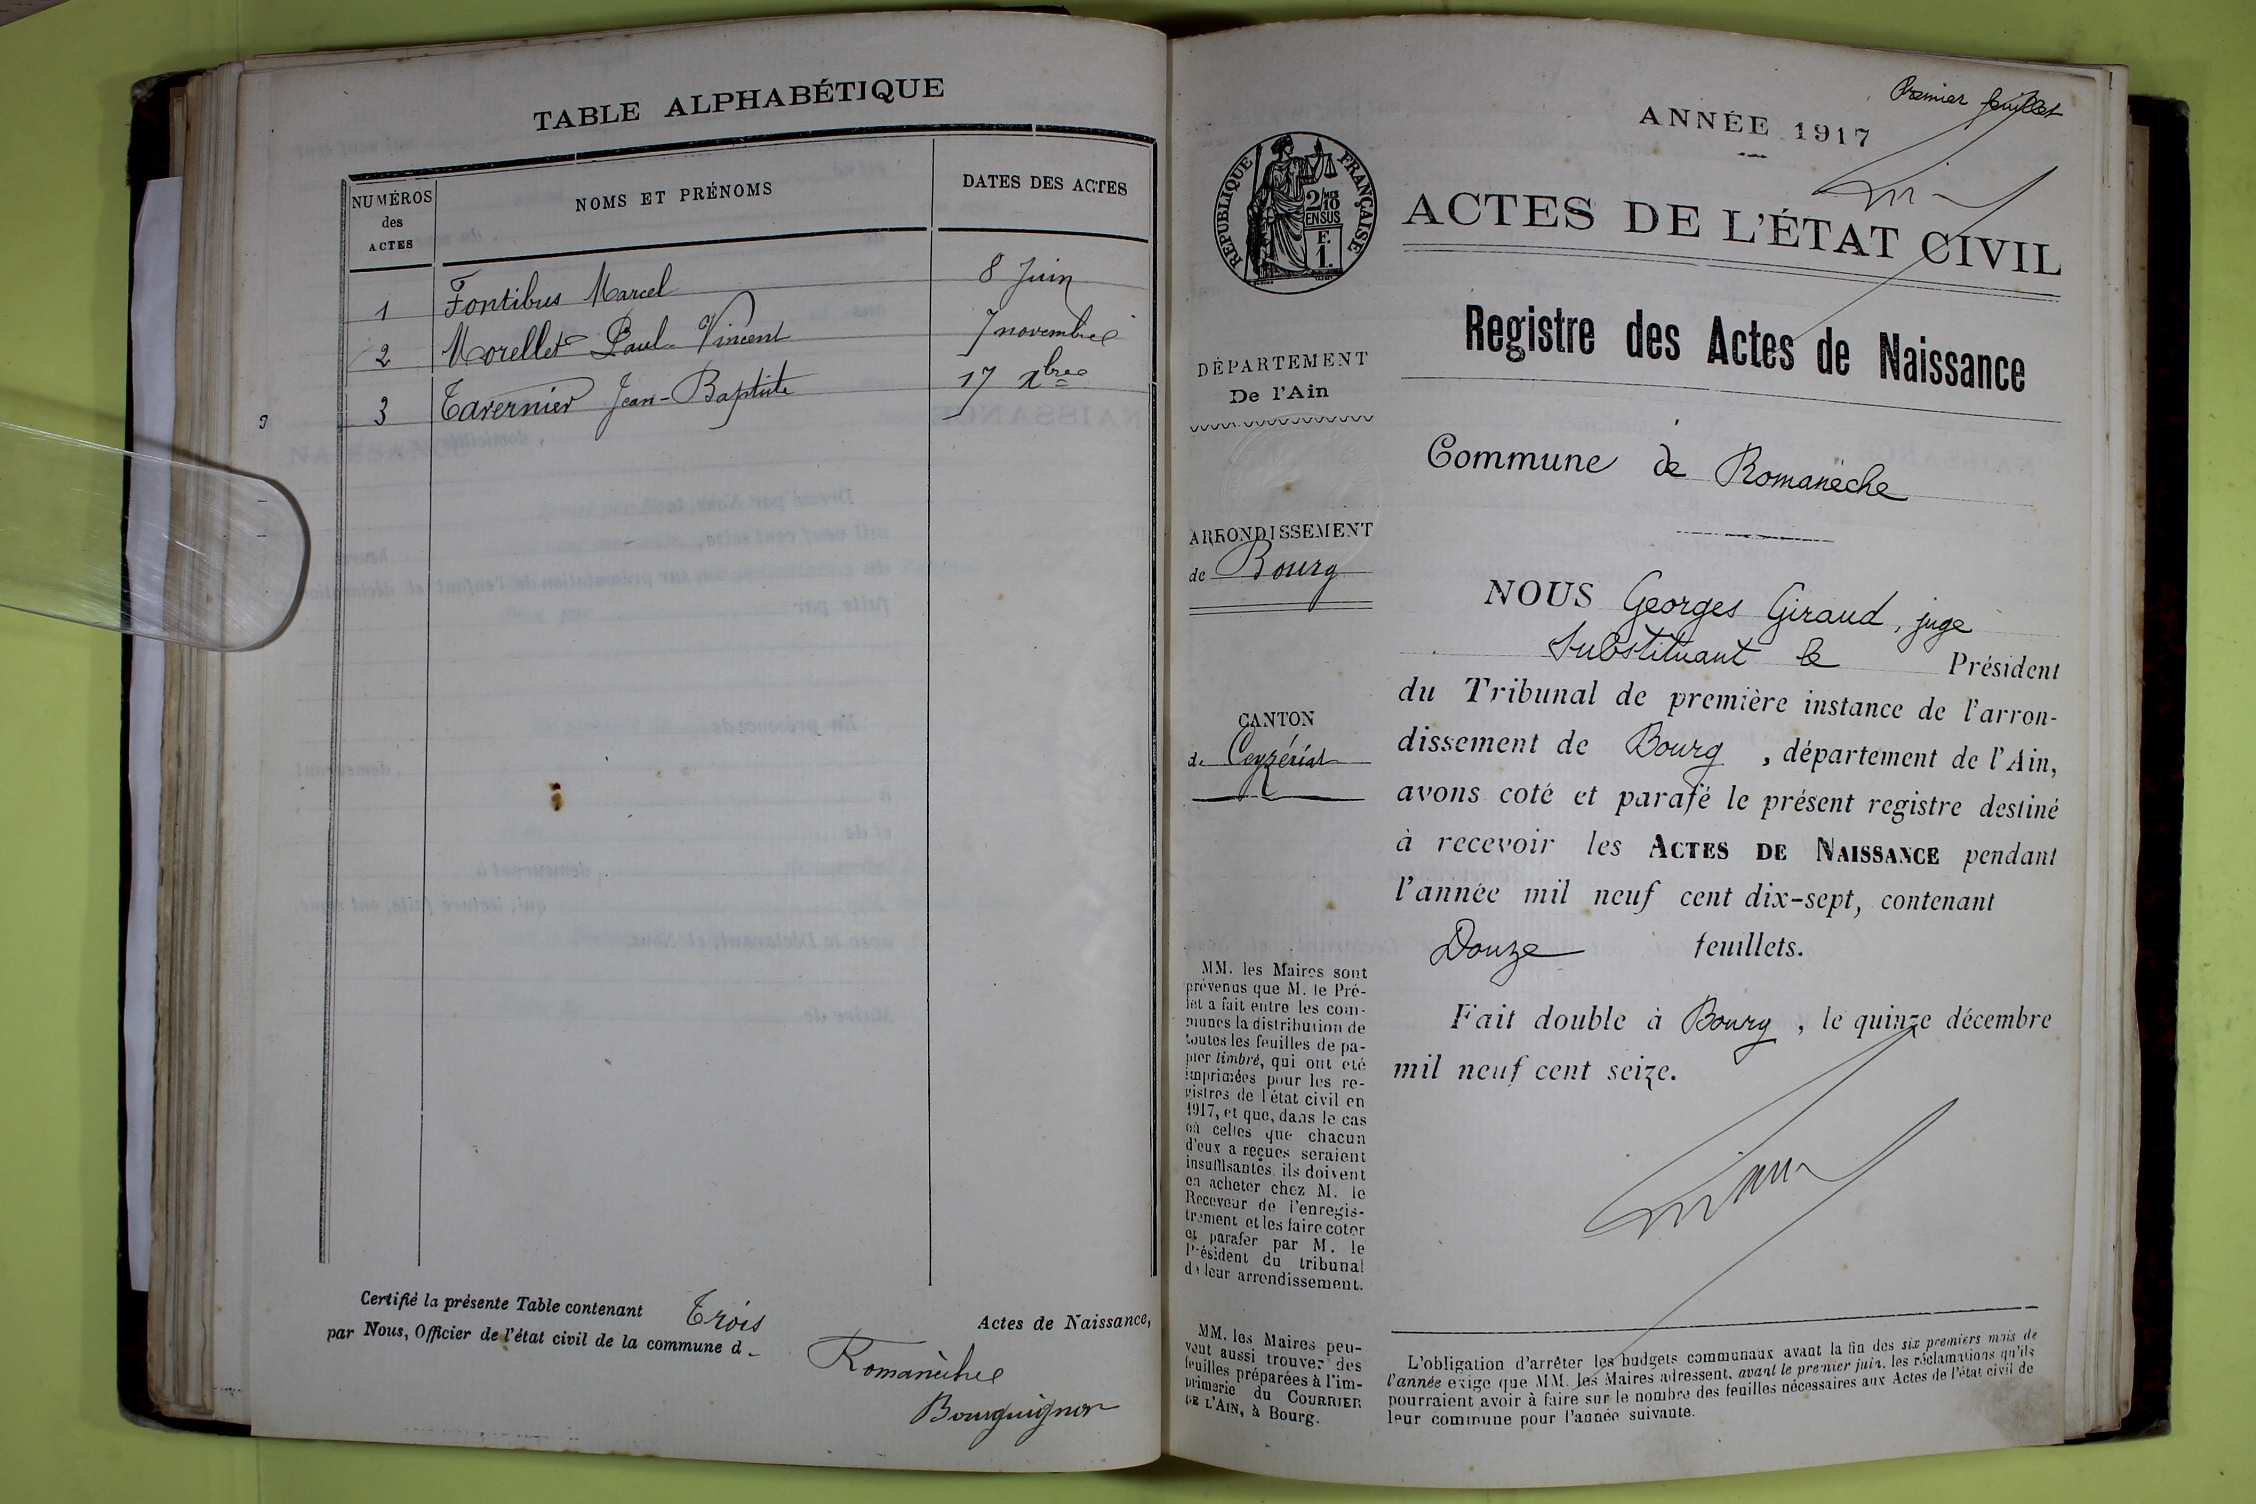 TABLE ALPHABÉTIQUE
NUMÉROS des ACTES
NOMS ET PRÉNOMS
DATES DES ACTES
1 Fontibus Marcel 8 Juin
2 Morellet Paul Vincent 7 novembre
3 Tavernier Jean-Baptiste 17 Xbre
Certifié la présente Table contenant Trois Actes de Naissance,
par Nous, Officier de l'état civil de la commune d
Romanèche
Bourguignon
Premier feuillet
ANNÉE 1917
RÉPUBLIQUE FRANÇAISE
2/10 EN SUS
F. 1.
ACTES DE L'ÉTAT CIVIL
Registre des Actes de Naissance
DÉPARTEMENT
De l'Ain
ARRONDISSEMENT
de Bourg
CANTON
de Ceyzériat
MM. les Maires sont
prévenus que M. le Pré-
fet a fait entre les com-
munes la distribution de
toutes les feuilles de pa-
pier timbré, qui ont été
imprimées pour les re-
gistres de l'état civil en
1917, et que, dans le cas
où celles que chacun
d'eux a reçues seraient
insuffisantes, ils doivent
en acheter chez M. le
Receveur de l'enregis-
trement et les faire coter
et parafer par M. le
Président du tribunal
de leur arrondissement.
MM. les Maires peu-
vent aussi trouver des
feuilles préparées à l'im-
primerie du COURRIER
DE L'AIN, à Bourg.
Commune de Romanèche
NOUS Georges Giraud, juge
substituant le Président
du Tribunal de première instance de l'arron-
dissement de Bourg, département de l'Ain,
avons coté et parafé le présent registre destiné
à recevoir les ACTES DE NAISSANCE pendant
l'année mil neuf cent dix-sept, contenant
Douze feuillets.
Fait double à Bourg, le quinze décembre
mil neuf cent seize.
L'obligation d'arrêter les budgets communaux avant la fin des six premiers mois de
l'année exige que MM. les Maires adressent, avant le premier juin, les réclamations qu'ils
pourraient avoir à faire sur le nombre des feuilles nécessaires aux Actes de l'état civil de
leur commune pour l'année suivante.